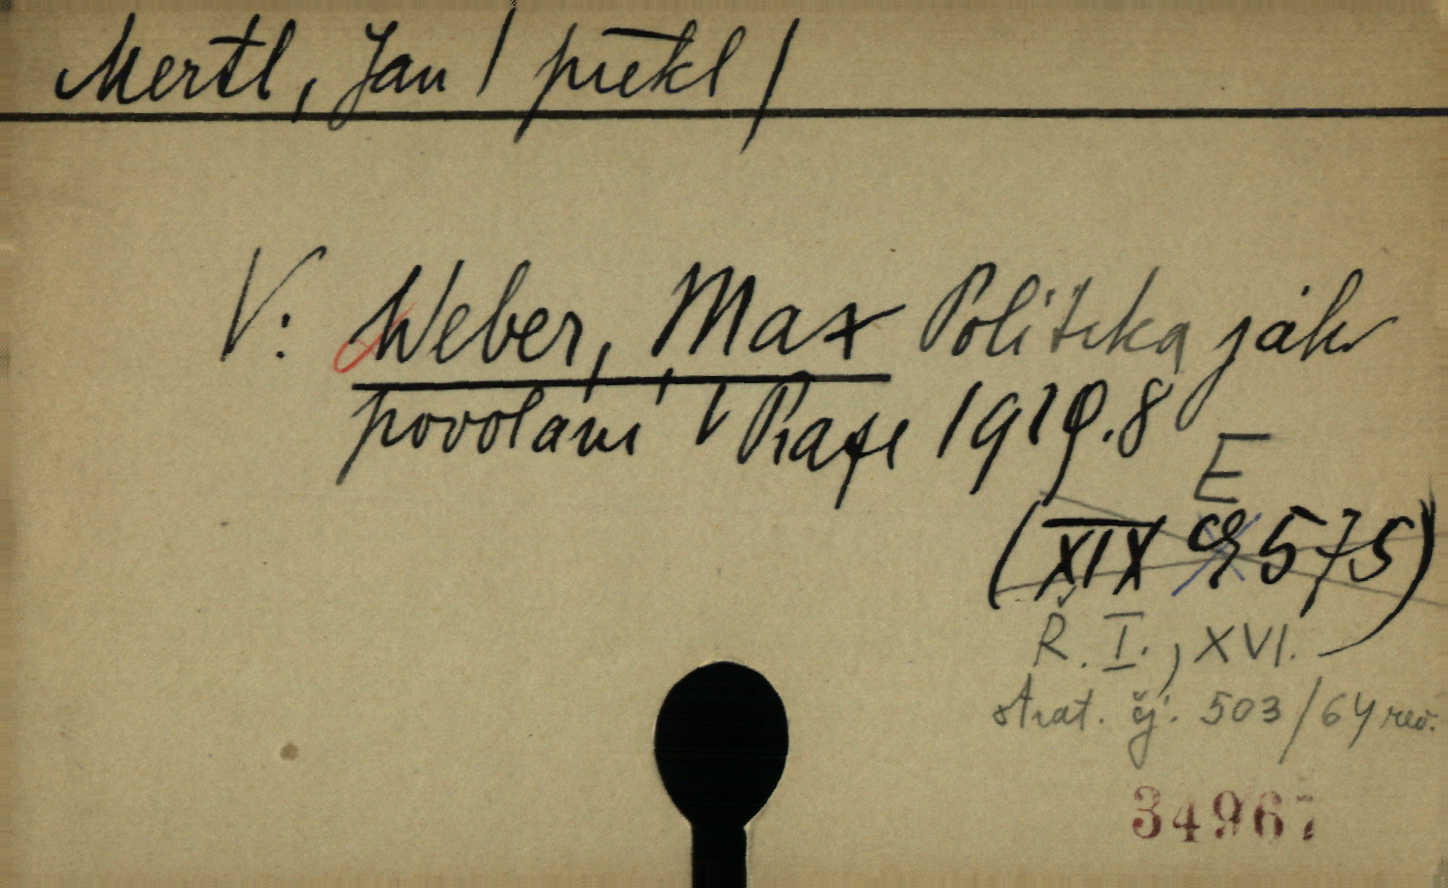 Mertl, Jan / překl /
V: Weber, Max Politika jako
povolání V Praze 1919. 8
E
(XIX 575)
Ř. I., XVI.
strat. čj. 503/64 rev.
34967